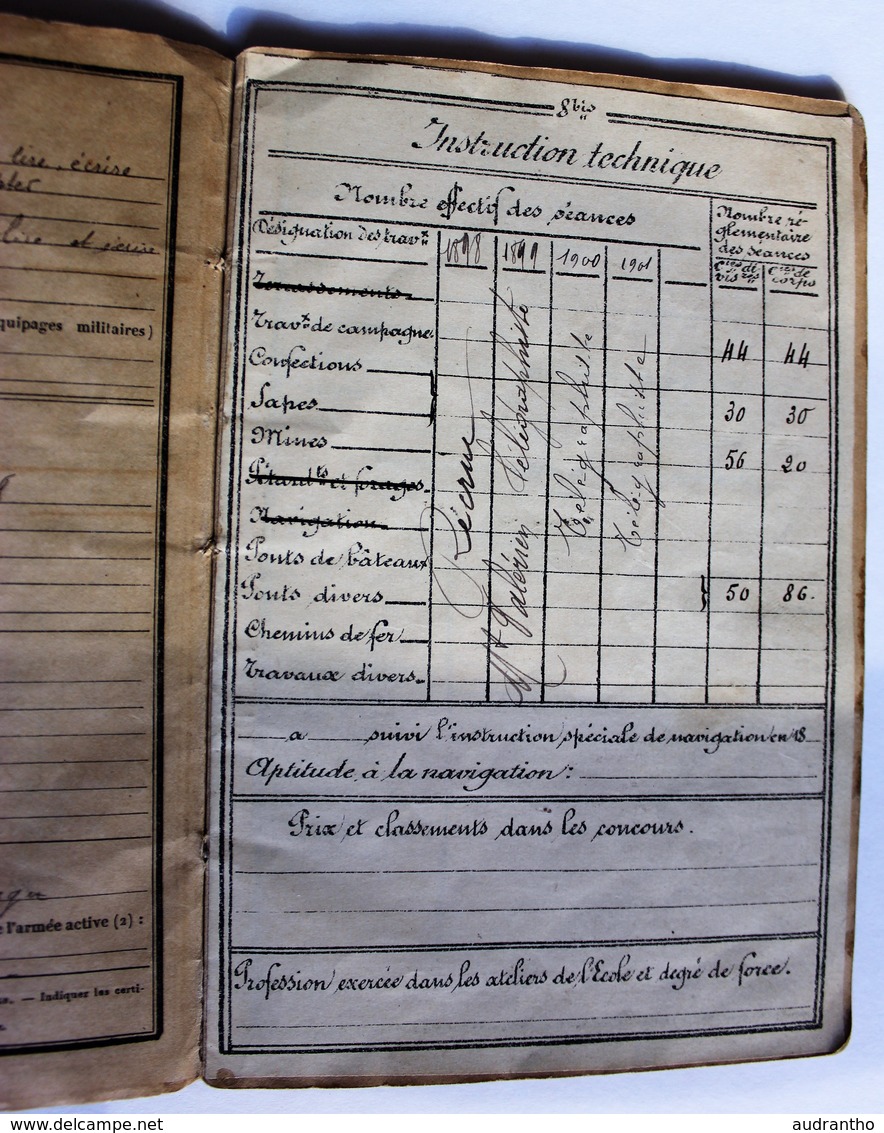 lire, écrire
lire et écrire
quipages militaires)
l'armée active (2) :
— Indiquer les certi-
8 bis
Instruction technique
Nombre effectif des séances
Nombre ré-
glementaire
des séances
Désignation des trav.x 1898 1899 1900 1901
Cies de corps
Terrassements
Trav.x de campagne 44 44
Confections
Sapes 30 30
Mines 56 20
Pétard.ts et forages
Navigation
Ponts de bâteaux
Ponts divers 50 86.
Chemins de fer
Travaux divers
Recrue
Mt Valérien Télégraphiste
Télégraphiste
Télégraphiste
a suivi l'instruction spéciale de navigation en 18
Aptitude à la navigation :
Prix et classements dans les concours.
Profession exercée dans les ateliers de l'École et degré de force.
audrantho